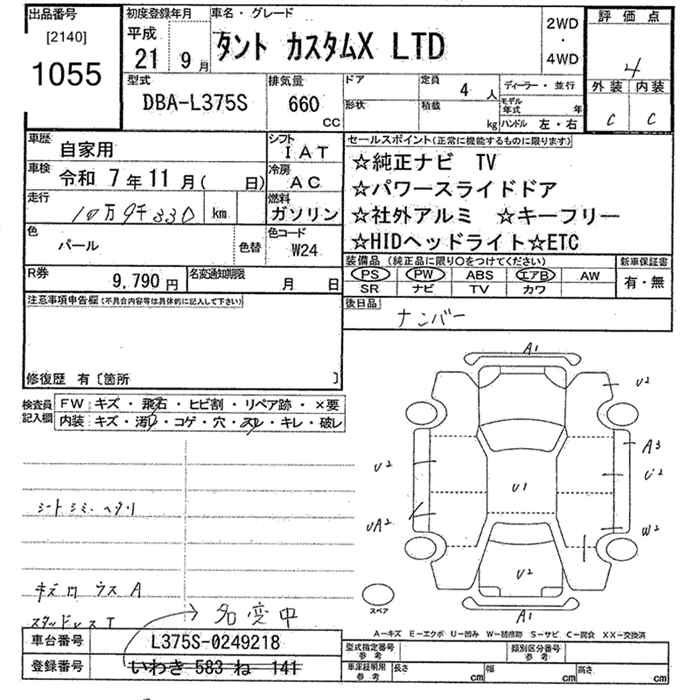 出品番号
[2140]
1055
初度登録年月
平成
21 9月
車名・グレード
タント カスタムX LTD
2WD
・
4WD
評価点
4
外装 内装
C C
型式
DBA-L375S
排気量
660
CC
ドア
形状
定員
4人
積載
kg
ディーラー・並行
モデル年式 年
ハンドル 左・右
車歴
自家用
シフト
IAT
車検
令和 7年11月( 日)
冷房
AC
走行
10万9千330 km
燃料
ガソリン
色
パール
色替
色コード
W24
R券
9,790円
名変通知期限
月 日
セールスポイント(正常に機能するものに限ります)
☆純正ナビ TV
☆パワースライドドア
☆社外アルミ ☆キーフリー
☆HIDヘッドライト☆ETC
装備品(純正品に限り○をつけてください)
PS PW ABS エアB AW
SR ナビ TV カワ
新車保証書
有・無
後日品
ナンバー
注意事項申告欄(不具合内容等は具体的に記入して下さい)
修復歴 有〔箇所 〕
検査員記入欄
FW キズ・飛石・ヒビ割・リペア跡・×要
内装 キズ・汚れ・コゲ・穴・スレ・キレ・破レ
シートシミ・ヘタリ
キズ凹 ウス A
スタッドレスT
名変中
A1
U2
A3
U2
U2
U1
UA2
W2
U2
A1
スペア
A－キズ E－エクボ U－凹み W－補修跡 S－サビ C－腐食 XX－交換済
車台番号
L375S-0249218
登録番号
いわき 583 ね 141
型式指定番号
参考
類別区分番号
参考
車庫証明用
参考
長さ cm 幅 cm 高さ cm